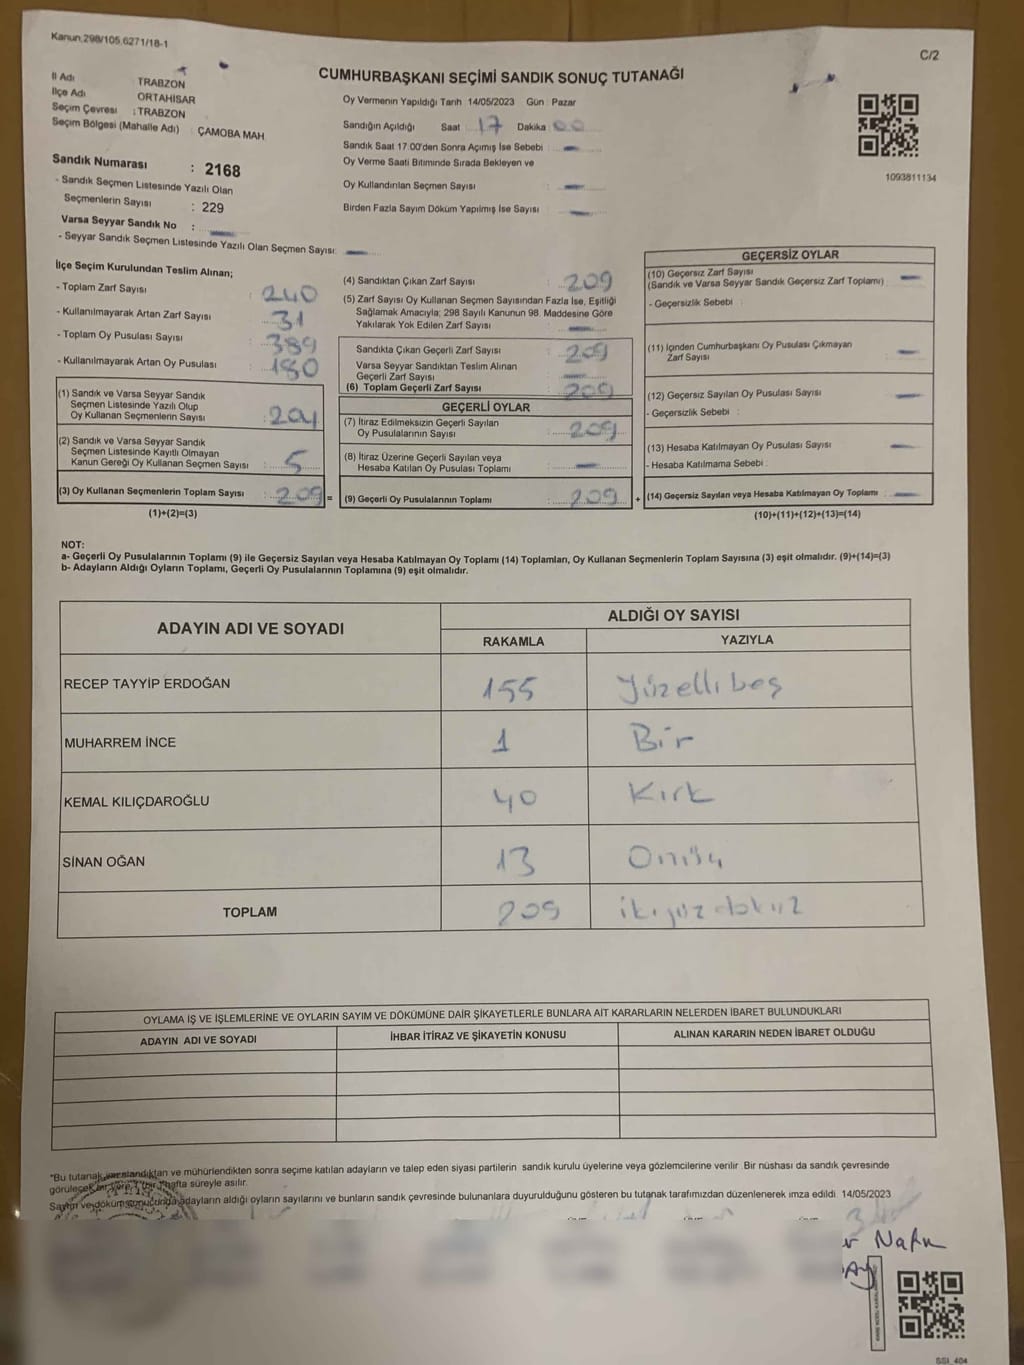 Kanun.298/105.6271/18-1
C/2
CUMHURBAŞKANI SEÇİMİ SANDIK SONUÇ TUTANAĞI
İl Adı TRABZON
İlçe Adı ORTAHİSAR
Seçim Çevresi : TRABZON
Seçim Bölgesi (Mahalle Adı) : ÇAMOBA MAH.
Sandık Numarası : 2168
- Sandık Seçmen Listesinde Yazılı Olan
Seçmenlerin Sayısı : 229
Varsa Seyyar Sandık No :
- Seyyar Sandık Seçmen Listesinde Yazılı Olan Seçmen Sayısı:
Oy Vermenin Yapıldığı Tarih 14/05/2023 Gün : Pazar
Sandığın Açıldığı Saat : 17 Dakika : 00
Sandık Saat 17.00'den Sonra Açımış İse Sebebi :
Oy Verme Saati Bitiminde Sırada Bekleyen ve
Oy Kullandırılan Seçmen Sayısı :
Birden Fazla Sayım Döküm Yapılmış İse Sayısı :
1093811134
İlçe Seçim Kurulundan Teslim Alınan;
- Toplam Zarf Sayısı : 240
- Kullanılmayarak Artan Zarf Sayısı : 31
- Toplam Oy Pusulası Sayısı : 389
- Kullanılmayarak Artan Oy Pusulası : 180
(1) Sandık ve Varsa Seyyar Sandık
Seçmen Listesinde Yazılı Olup
Oy Kullanan Seçmenlerin Sayısı : 204
(2) Sandık ve Varsa Seyyar Sandık
Seçmen Listesinde Kayıtlı Olmayan
Kanun Gereği Oy Kullanan Seçmen Sayısı : 5
(3) Oy Kullanan Seçmenlerin Toplam Sayısı : 209 =
(1)+(2)=(3)
(4) Sandıktan Çıkan Zarf Sayısı : 209
(5) Zarf Sayısı Oy Kullanan Seçmen Sayısından Fazla İse, Eşitliği
Sağlamak Amacıyla; 298 Sayılı Kanunun 98. Maddesine Göre
Yakılarak Yok Edilen Zarf Sayısı :
Sandıkta Çıkan Geçerli Zarf Sayısı : 209
Varsa Seyyar Sandıktan Teslim Alınan
Geçerli Zarf Sayısı :
(6) Toplam Geçerli Zarf Sayısı : 209
GEÇERLİ OYLAR
(7) İtiraz Edilmeksizin Geçerli Sayılan
Oy Pusulalarının Sayısı : 209
(8) İtiraz Üzerine Geçerli Sayılan veya
Hesaba Katılan Oy Pusulası Toplamı :
(9) Geçerli Oy Pusulalarının Toplamı : 209 +
GEÇERSİZ OYLAR
(10) Geçersiz Zarf Sayısı
(Sandık ve Varsa Seyyar Sandık Geçersiz Zarf Toplamı) :
- Geçersizlik Sebebi :
(11) İçinden Cumhurbaşkanı Oy Pusulası Çıkmayan
Zarf Sayısı :
(12) Geçersiz Sayılan Oy Pusulası Sayısı :
- Geçersizlik Sebebi :
(13) Hesaba Katılmayan Oy Pusulası Sayısı :
- Hesaba Katılmama Sebebi :
(14) Geçersiz Sayılan veya Hesaba Katılmayan Oy Toplamı :
(10)+(11)+(12)+(13)=(14)
NOT:
a- Geçerli Oy Pusulalarının Toplamı (9) ile Geçersiz Sayılan veya Hesaba Katılmayan Oy Toplamı (14) Toplamları, Oy Kullanan Seçmenlerin Toplam Sayısına (3) eşit olmalıdır. (9)+(14)=(3)
b- Adayların Aldığı Oyların Toplamı, Geçerli Oy Pusulalarının Toplamına (9) eşit olmalıdır.
ADAYIN ADI VE SOYADI
ALDIĞI OY SAYISI
RAKAMLA YAZIYLA
RECEP TAYYİP ERDOĞAN 155 Yüzellibeş
MUHARREM İNCE 1 Bir
KEMAL KILIÇDAROĞLU 40 Kırk
SİNAN OĞAN 13 Onüç
TOPLAM 209 ikiyüzdokuz
OYLAMA İŞ VE İŞLEMLERİNE VE OYLARIN SAYIM VE DÖKÜMÜNE DAİR ŞİKAYETLERLE BUNLARA AİT KARARLARIN NELERDEN İBARET BULUNDUKLARI
ADAYIN ADI VE SOYADI İHBAR İTİRAZ VE ŞİKAYETİN KONUSU ALINAN KARARIN NEDEN İBARET OLDUĞU
"Bu tutanak imzalandıktan ve mühürlendikten sonra seçime katılan adayların ve talep eden siyasi partilerin sandık kurulu üyelerine veya gözlemcilerine verilir. Bir nüshası da sandık çevresinde
görülecek bir yere 1 (bir) hafta süreyle asılır.
Sayım ve döküm sonucunda adayların aldığı oyların sayılarını ve bunların sandık çevresinde bulunanlara duyurulduğunu gösteren bu tutanak tarafımızdan düzenlenerek imza edildi. 14/05/2023
SSI_404